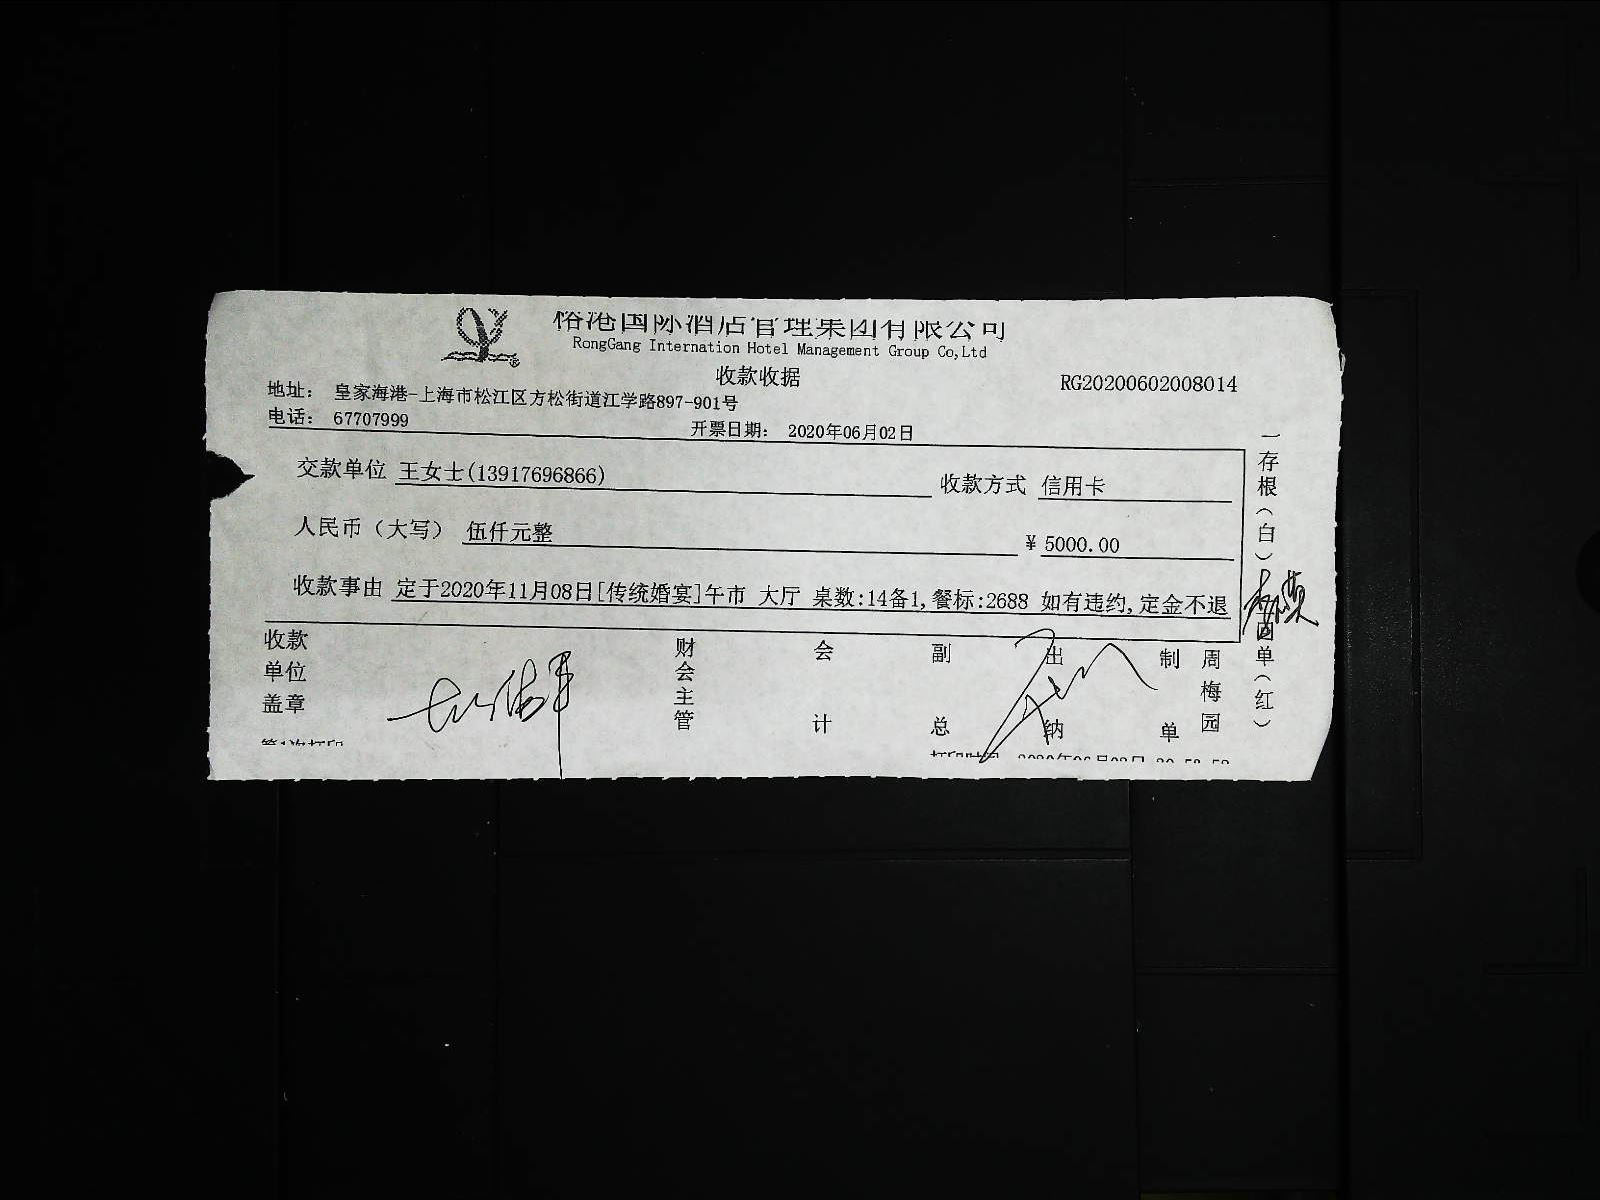 国际酒店管理集团有限公司
RongGang Internation Hotel Management Group Co,Ltd
收款收据
RG20200602008014
地址: 皇家海港-上海市松江区方松街道江学路897-901号
电话: 67707999
开票日期: 2020年06月02日
交款单位 王女士(13917696866) 收款方式 信用卡
人民币(大写) 伍仟元整 ¥ 5000.00
收款事由 定于2020年11月08日[传统婚宴]午市 大厅 桌数:14备1,餐标:2688 如有违约,定金不退
一存根(白)
单(红)
收款单位盖章
财会主管
会计
副总
出纳
制单
周梅园